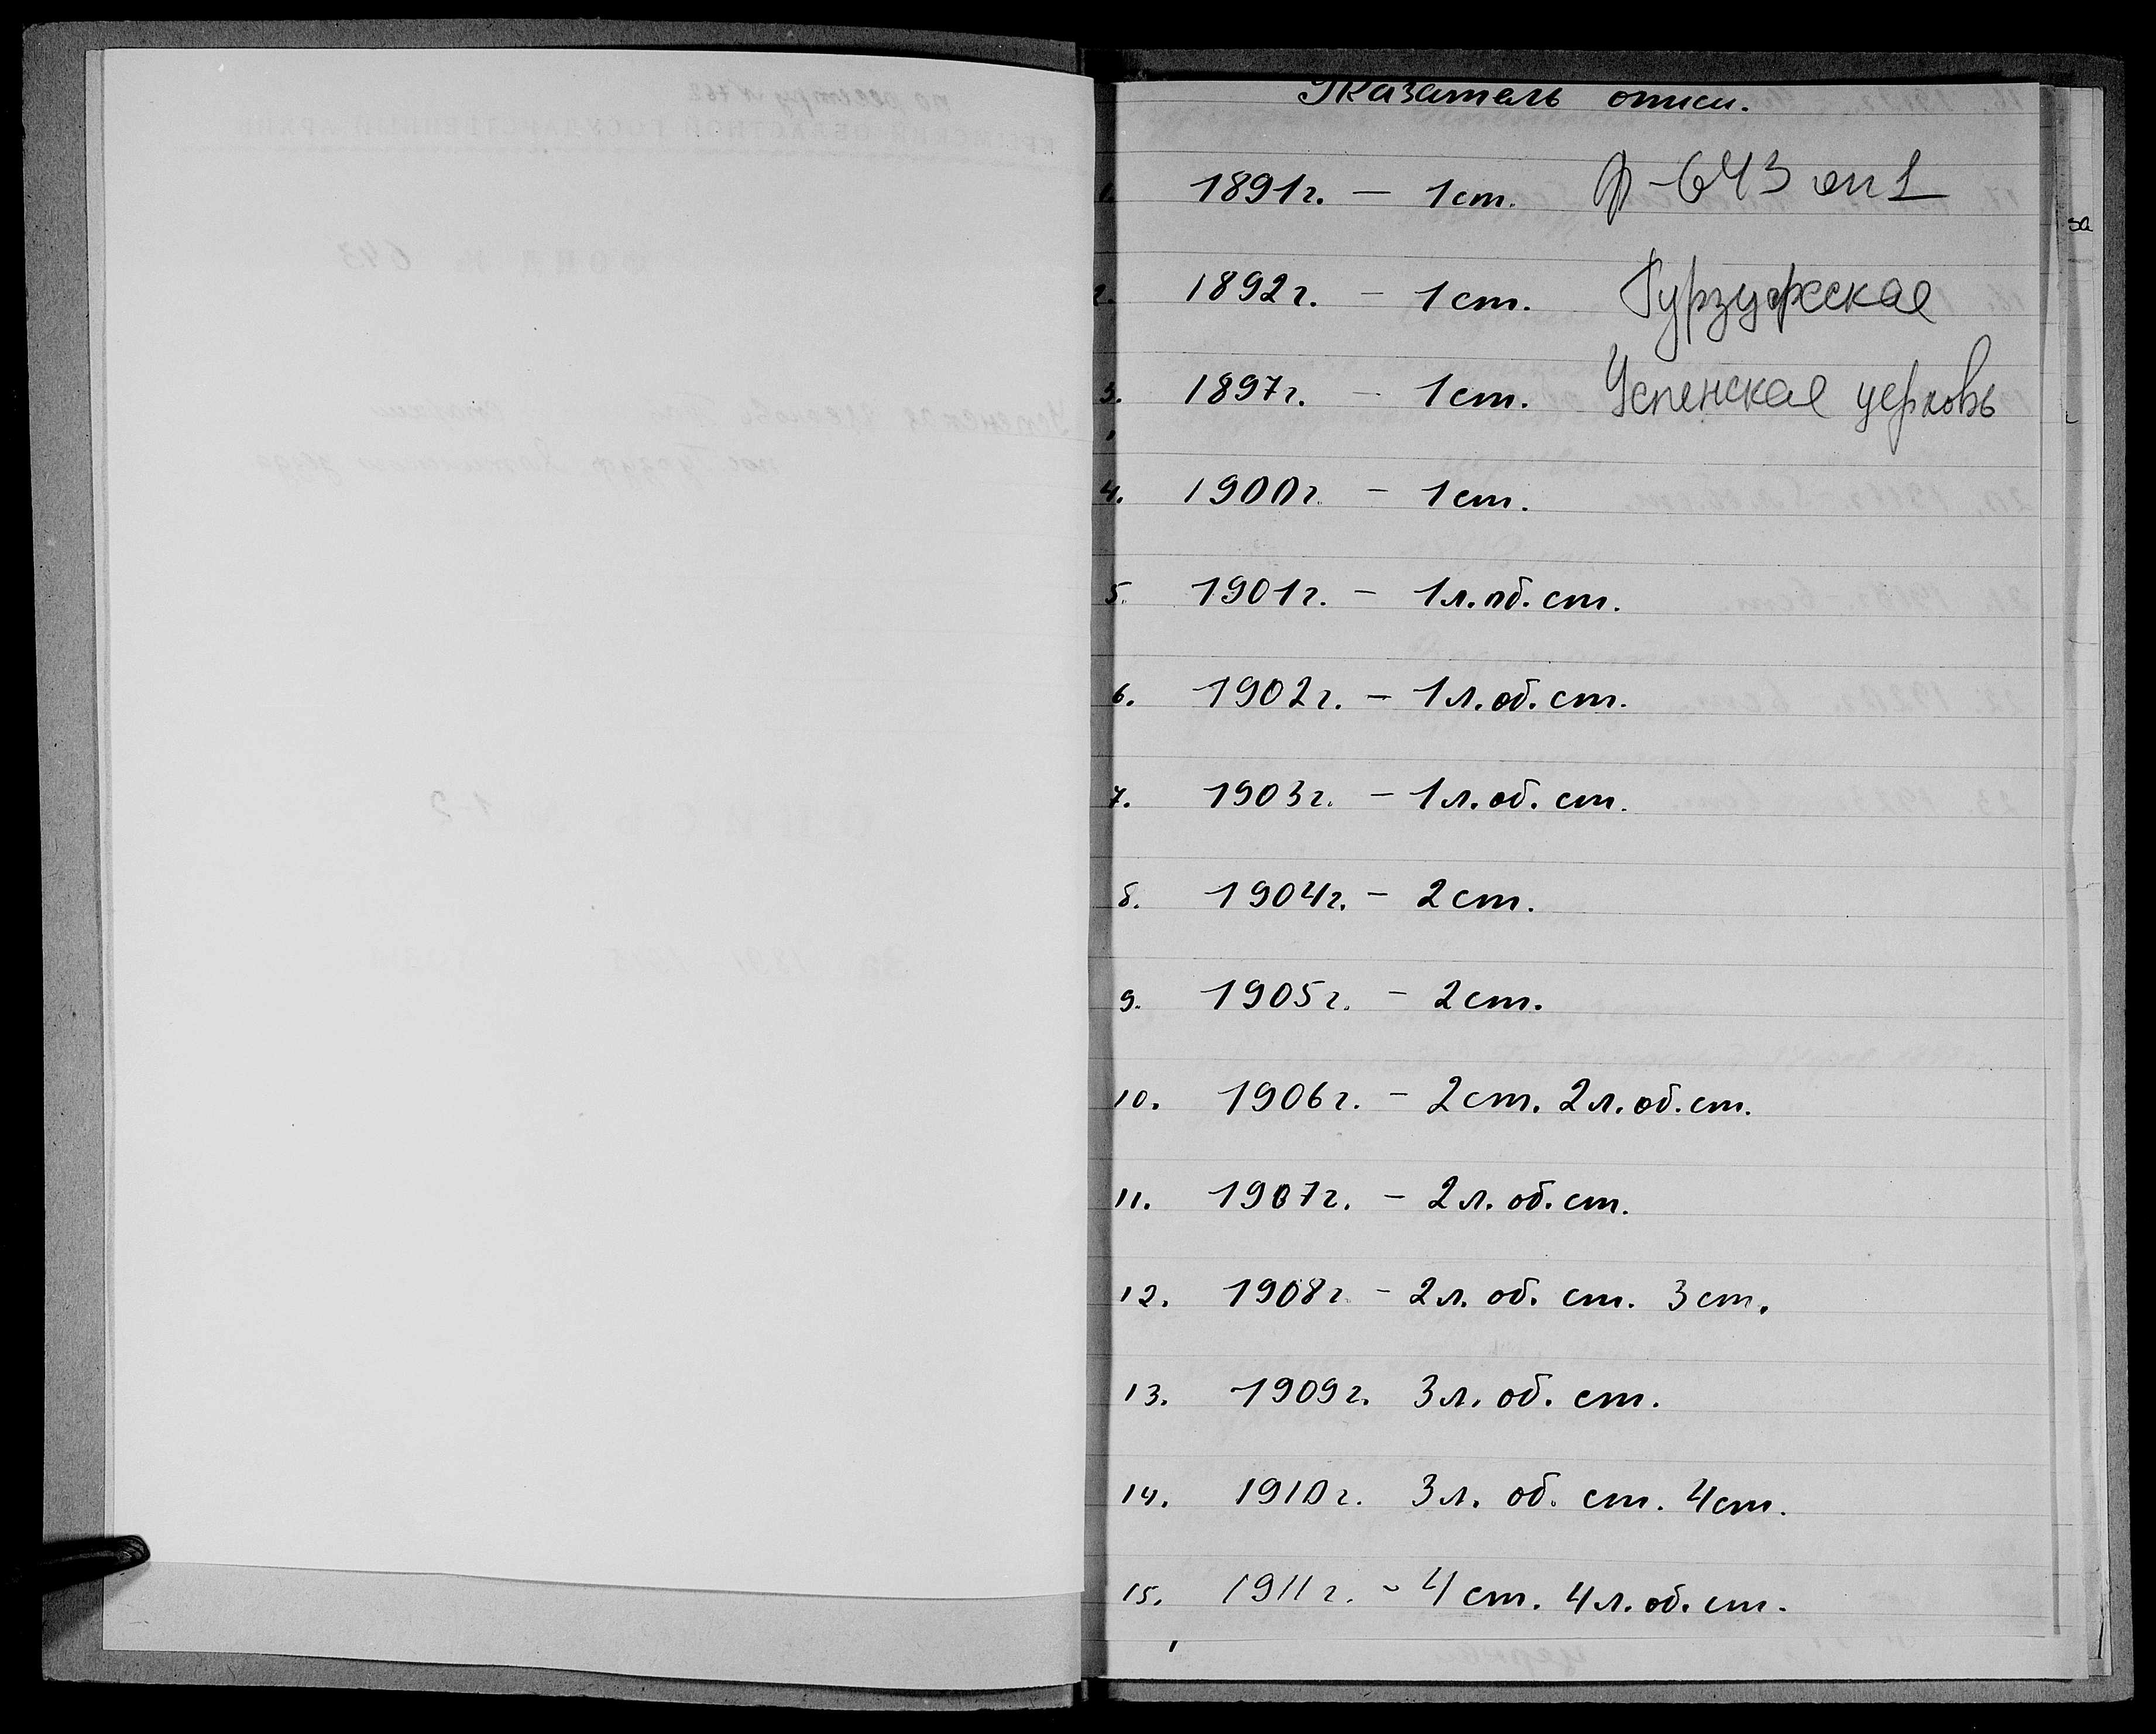 Указатель описи.
1. 1891г. – 1ст. Ф-643 оп1
2. 1892г. – 1ст. Гурзуфская
3. 1897г. – 1ст. Успенская церковь
4. 1900г. – 1ст.
5. 1901г. – 1л.об.ст.
6. 1902г. – 1л.об.ст.
7. 1903г. – 1л.об.ст.
8. 1904г. – 2ст.
9. 1905г. – 2ст.
10. 1906г. – 2ст. 2л.об.ст.
11. 1907г. – 2л.об.ст.
12. 1908г – 2л. об. ст. 3ст.
13. 1909г. 3л. об. ст.
14. 1910г. 3л. об. ст. 4ст.
15. 1911г. – 4ст. 4л.об.ст.
за